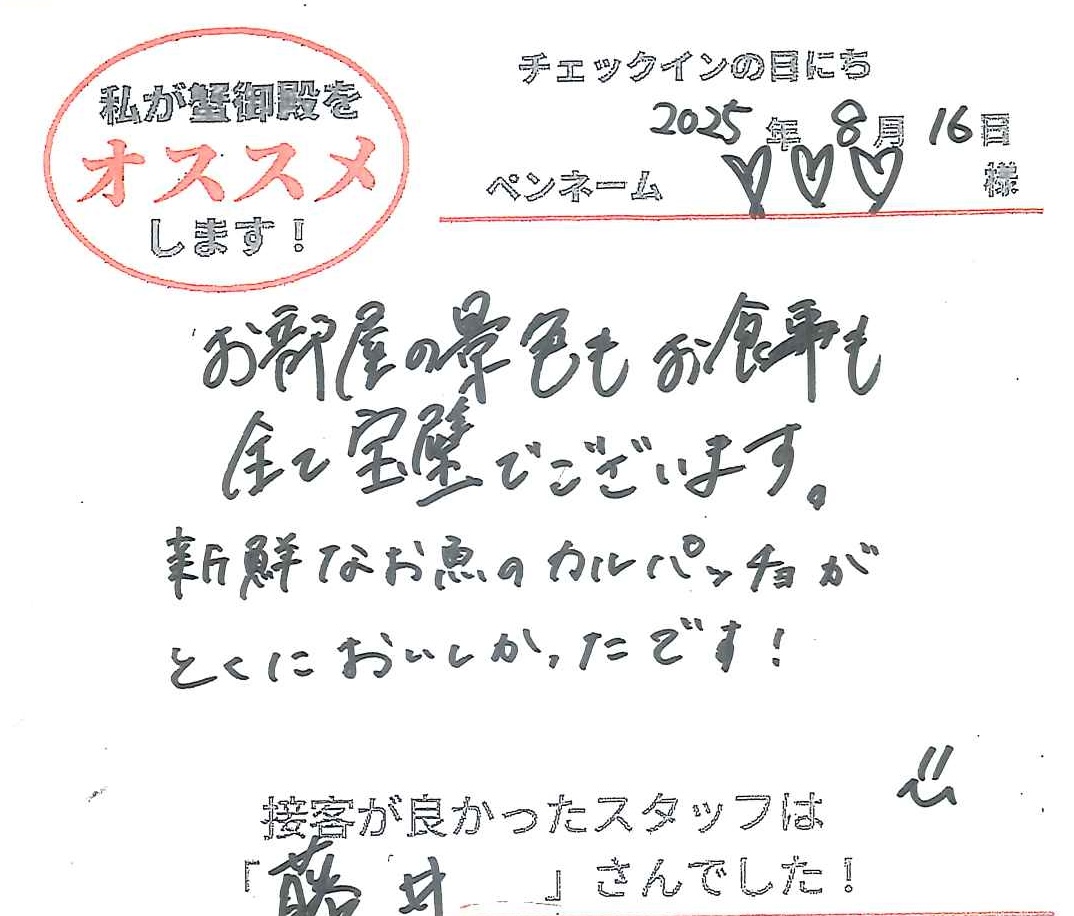 私が蟹御殿を
オススメ
します！
チェックインの日にち
2025年8月16日
ペンネーム ♡♡♡ 様
お部屋の景色もお食事も
全て完璧でございます。
新鮮なお魚のカルパッチョが
とくにおいしかったです！
接客が良かったスタッフは
「藤井」さんでした！